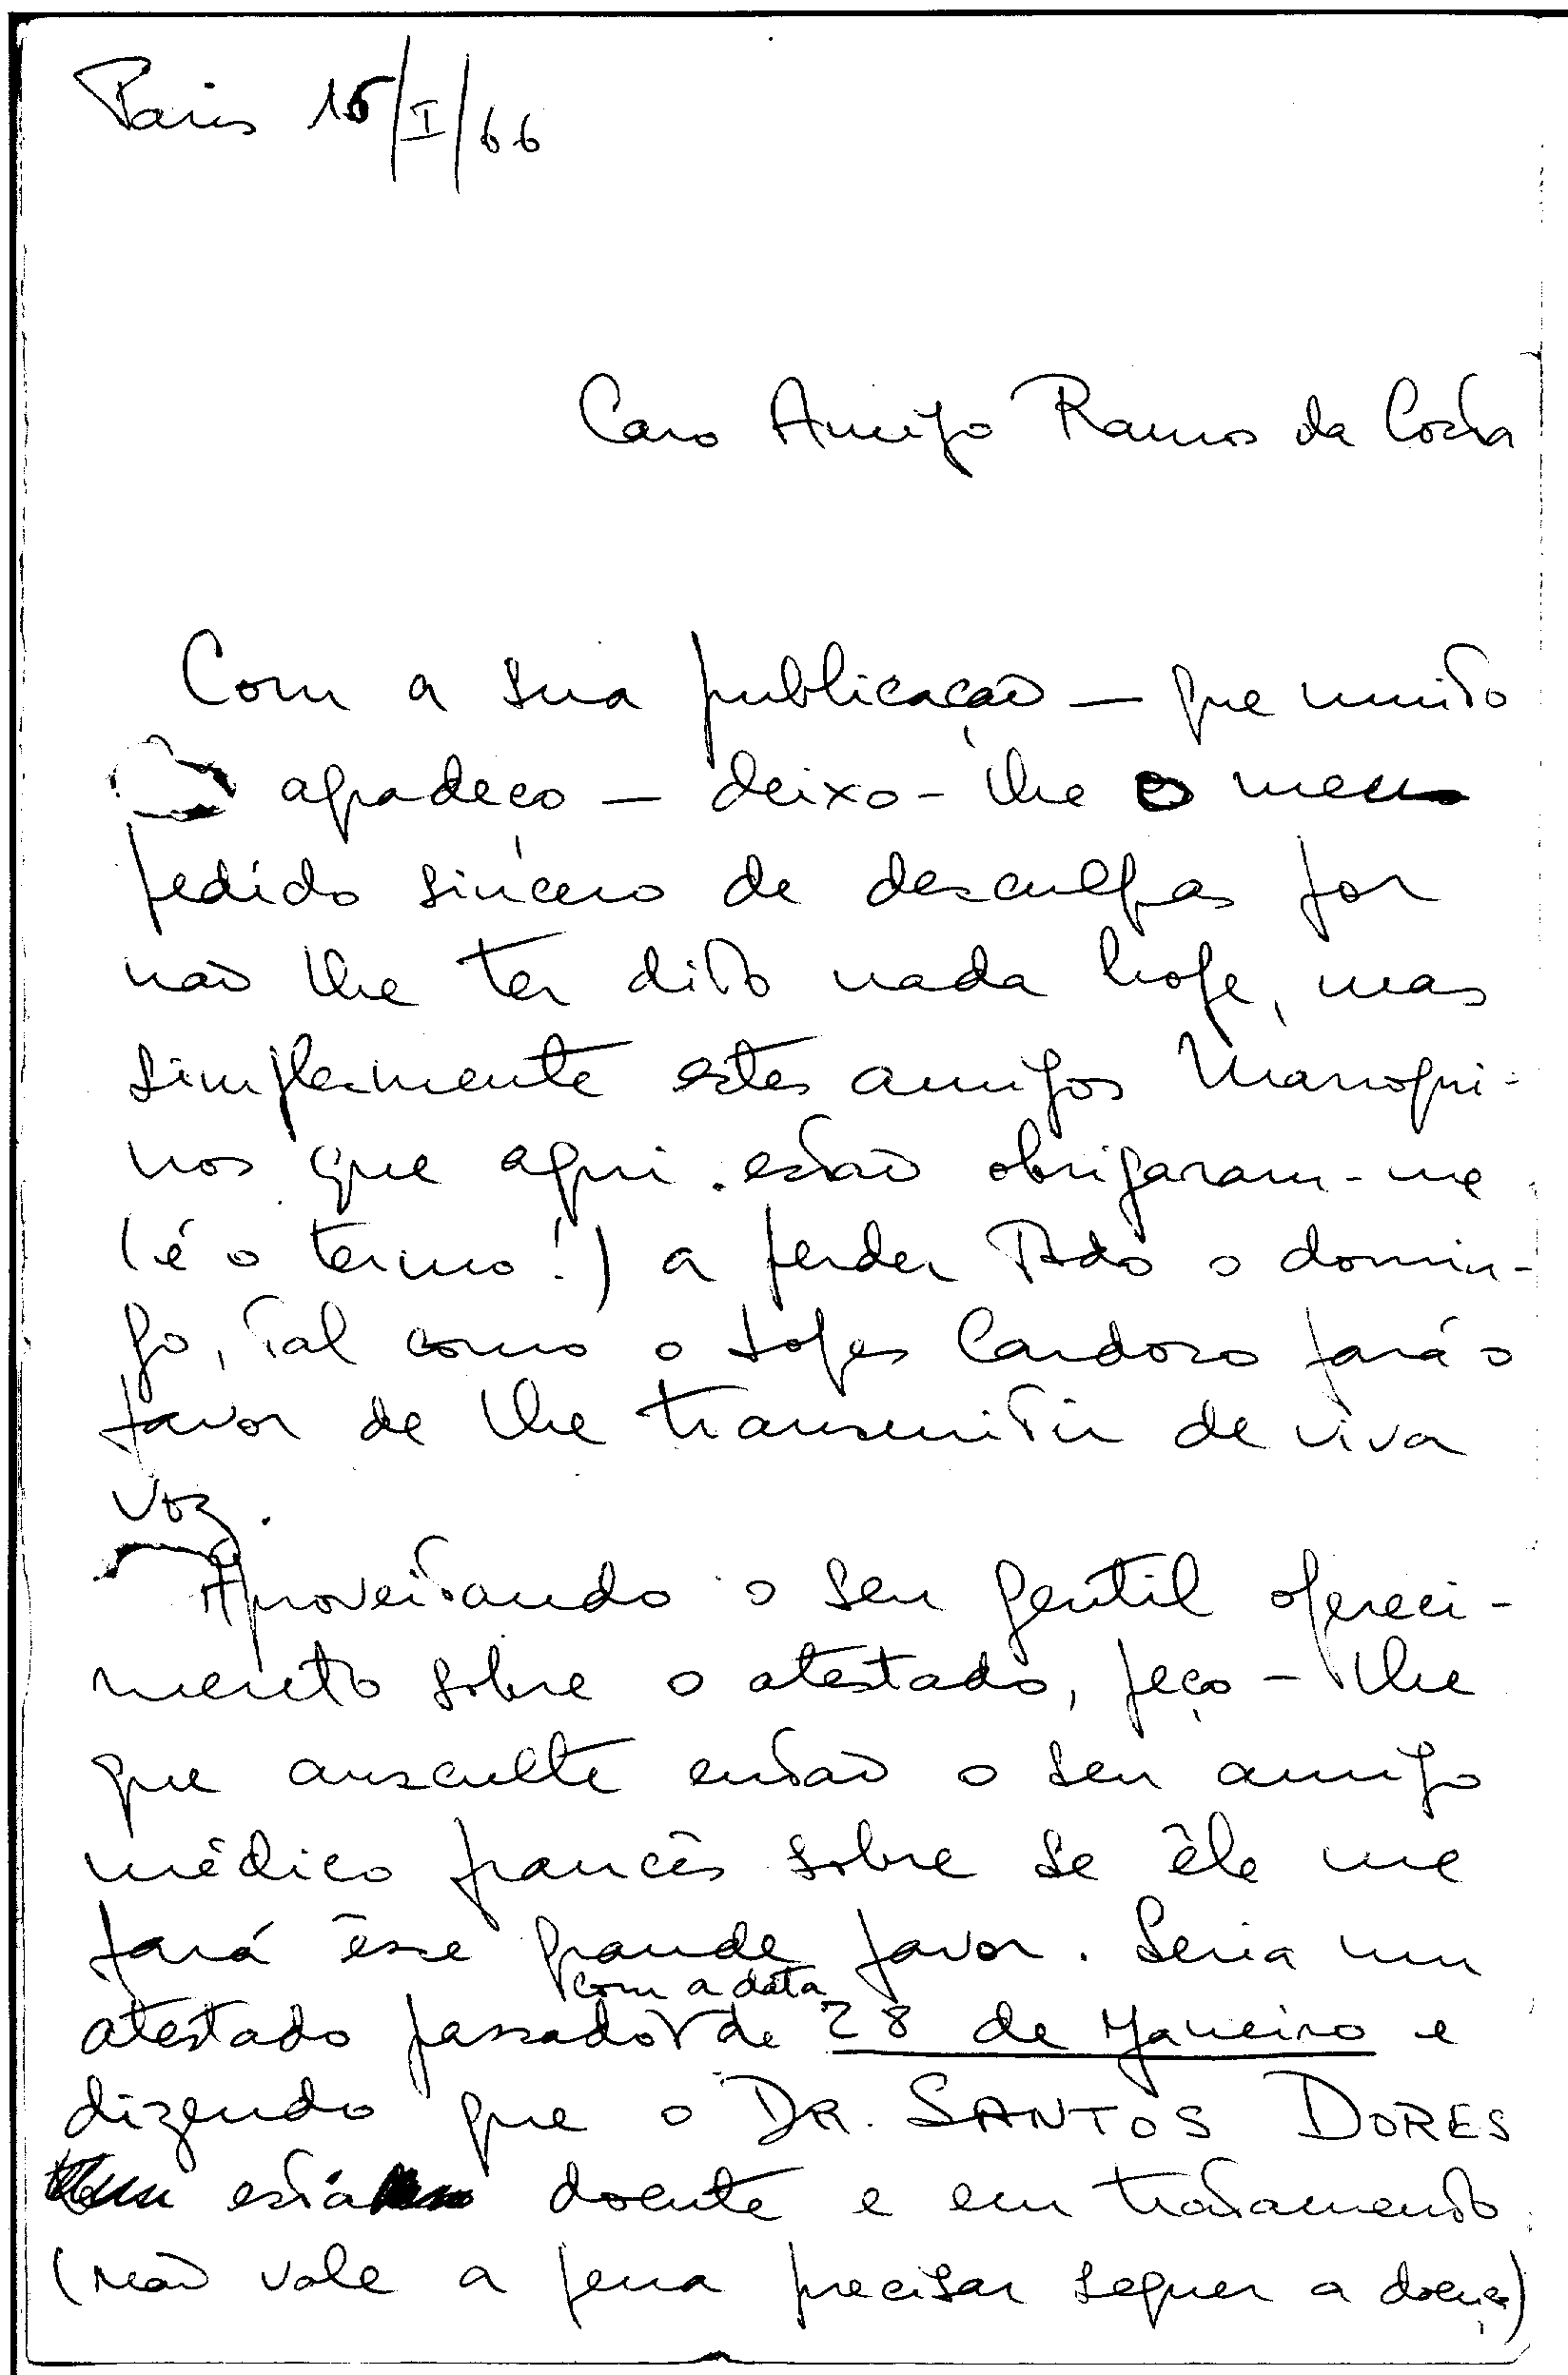 Paris 16/I/66
Caro Amigo Ramos da Costa
Com a sua publicação — que muito
agradeço — deixo-lhe o meu
pedido sincero de desculpas por
não lhe ter dito nada hoje, mas
simplesmente estes amigos Marroqui-
nos que aqui estão obrigaram-me
(é o termo!) a perder todo o domin-
go, tal como o Lopes Cardoso fará o
favor de lhe transmitir de viva
voz.
Aproveitando o seu gentil ofereci-
mento sobre o atestado, peço-lhe
que ausculte então o seu amigo
médico francês sobre se êle me
fará êsse grande favor. Seria um
atestado passado com a data de 28 de Janeiro e
dizendo que o DR. SANTOS DORES
está doente e em tratamento
(não vale a pena precisar sequer a doença)